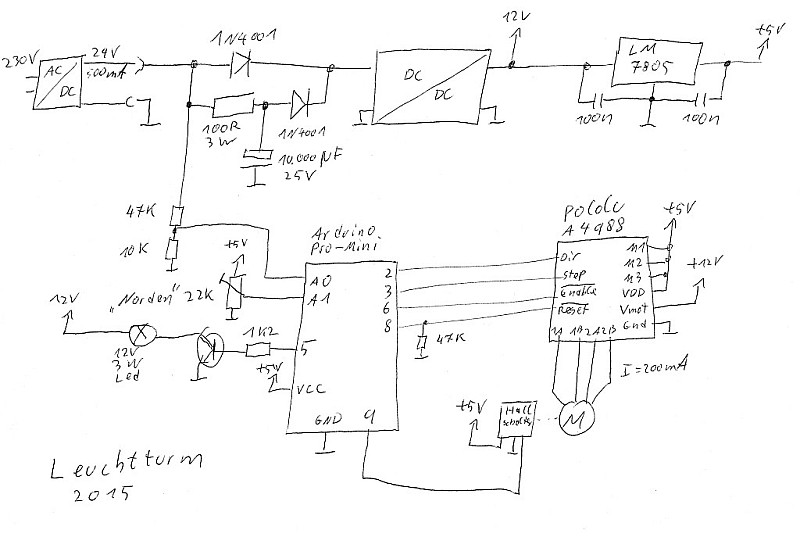 230V
AC
DC
24V
500mA
1N4001
100R
3W
1N4001
10.000µF
25V
DC
DC
12V
LM
7805
100n
100n
+5V
47K
10K
+5V
"Norden" 22K
12V
12V
3W
Led
1K2
+5V
Arduino
Pro-Mini
A0
A1
5
VCC
GND
9
2
3
6
8
47K
Pololu
A4988
Dir
Step
Enable
Reset
M1
M2
M3
VDD
Vmot
Gnd
1A 1B 2A 2B
+5V
+12V
I=200mA
M
+5V
Hall
schalter
Leuchtturm
2015